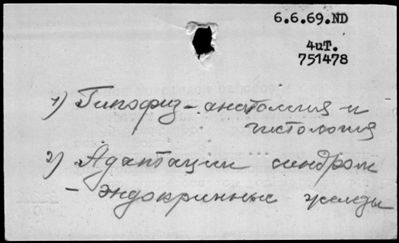 6.6.69.ND
4uT.
751478
1) Гипофиз - анатомия и
гистология
2) Адаптации синдром
- эндокринные железы